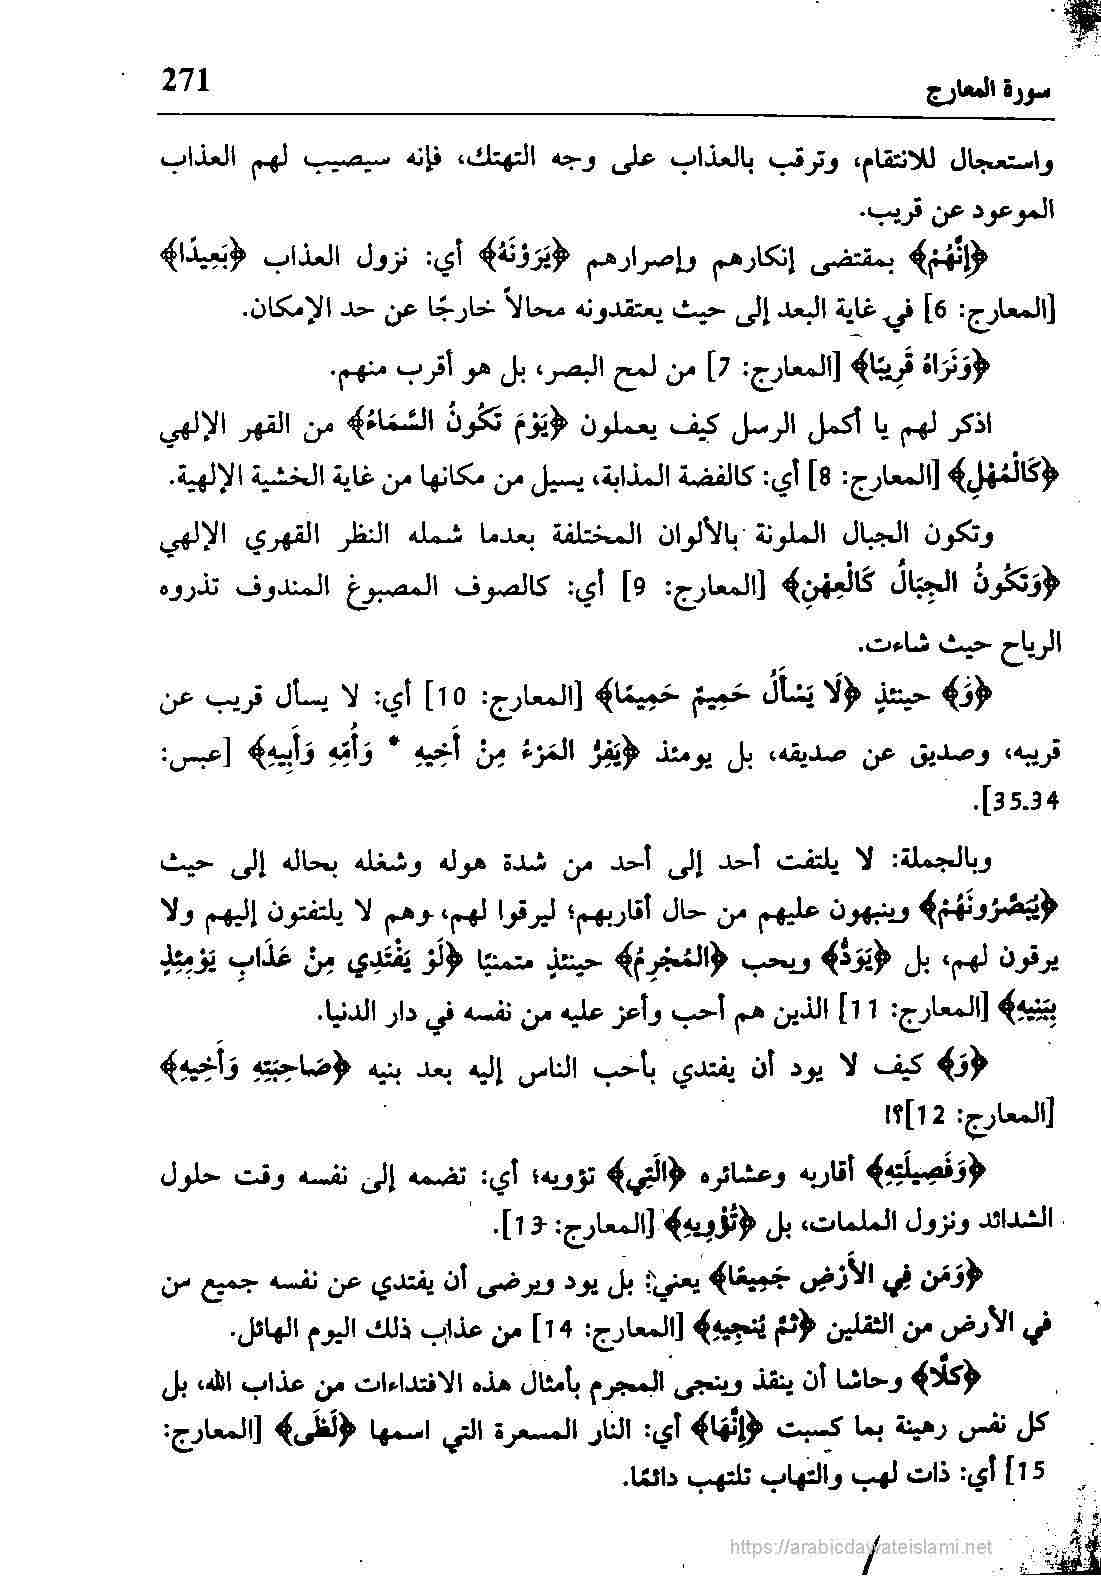 271
سورة المعارج
واستعجال للانتقام، وترقب بالعذاب على وجه التهتك، فإنه سيصيب لهم العذاب
الموعود عن قريب.
﴿إِنَّهُمْ﴾ بمقتضى إنكارهم وإصرارهم ﴿يَرَوْنَهُ﴾ أي: نزول العذاب ﴿بَعِيدًا﴾
[المعارج: 6] في غاية البعد إلى حيث يعتقدونه محالاً خارجًا عن حد الإمكان.
﴿وَنَرَاهُ قَرِيبًا﴾ [المعارج: 7] من لمح البصر، بل هو أقرب منهم.
اذكر لهم يا أكمل الرسل كيف يعملون ﴿يَوْمَ تَكُونُ السَّمَاءُ﴾ من القهر الإلهي
﴿كَالْمُهْلِ﴾ [المعارج: 8] أي: كالفضة المذابة، يسيل من مكانها من غاية الخشية الإلهية.
وتكون الجبال الملونة بالألوان المختلفة بعدما شمله النظر القهري الإلهي
﴿وَتَكُونُ الجِبَالُ كَالْعِهْنِ﴾ [المعارج: 9] أي: كالصوف المصبوغ المندوف تذروه
الرياح حيث شاءت.
﴿وَ﴾ حينئذٍ ﴿لَا يَسْأَلُ حَمِيمٌ حَمِيمًا﴾ [المعارج: 10] أي: لا يسأل قريب عن
قريبه، وصديق عن صديقه، بل يومئذ ﴿يَفِرُّ المَرْءُ مِنْ أَخِيهِ * وَأُمِّهِ وَأَبِيهِ﴾ [عبس:
35.34].
وبالجملة: لا يلتفت أحد إلى أحد من شدة هوله وشغله بحاله إلى حيث
﴿يُبَصَّرُونَهُمْ﴾ وينبهون عليهم من حال أقاربهم؛ ليرقوا لهم، وهم لا يلتفتون إليهم ولا
يرقون لهم، بل ﴿يَوَدُّ﴾ ويحب ﴿المُجْرِمُ﴾ حينئذٍ متمنيًا ﴿لَوْ يَفْتَدِي مِنْ عَذَابِ يَوْمِئِذٍ
بِبَنِيهِ﴾ [المعارج: 11] الذين هم أحب وأعز عليه من نفسه في دار الدنيا.
﴿وَ﴾ كيف لا يود أن يفتدي بأحب الناس إليه بعد بنيه ﴿صَاحِبَتِهِ وَأَخِيهِ﴾
[المعارج: 12]؟!
﴿وَفَصِيلَتِهِ﴾ أقاربه وعشائره ﴿الَتِي﴾ تؤويه؛ أي: تضمه إلى نفسه وقت حلول
الشدائد ونزول الملمات، بل ﴿تُؤْوِيهِ﴾ [المعارج: 13].
﴿وَمَن فِي الأَرْضِ جَمِيعًا﴾ يعني: بل يود ويرضى أن يفتدي عن نفسه جميع من
في الأرض من الثقلين ﴿ثُمَّ يُنجِيهِ﴾ [المعارج: 14] من عذاب ذلك اليوم الهائل.
﴿كَلَّا﴾ وحاشا أن ينقذ وينجى المجرم بأمثال هذه الافتداءات من عذاب الله، بل
كل نفس رهينة بما كسبت ﴿إِنَّهَا﴾ أي: النار المسعرة التي اسمها ﴿لَظَى﴾ [المعارج:
15] أي: ذات لهب والتهاب تلتهب دائمًا.
https://arabicdawateislami.net